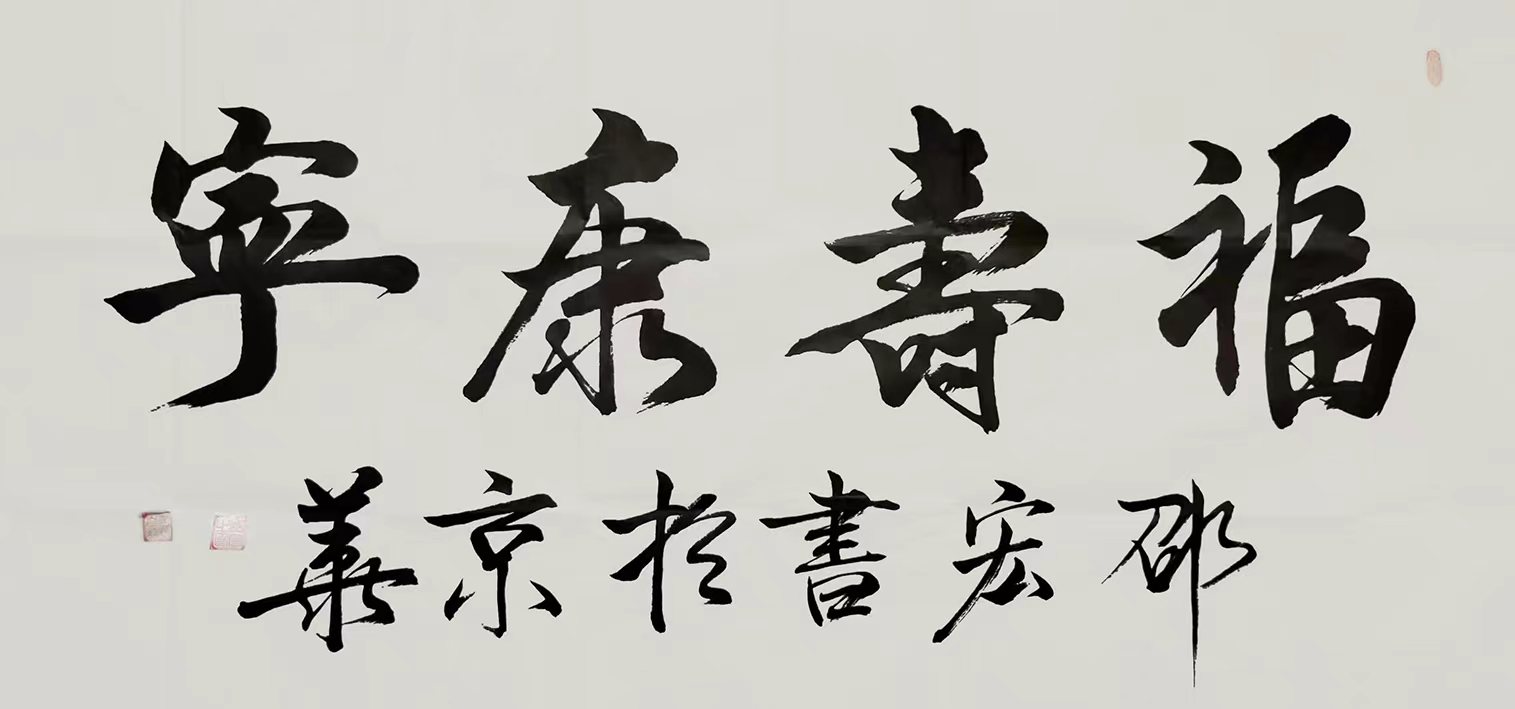 福壽康寧
邵宏書於京華